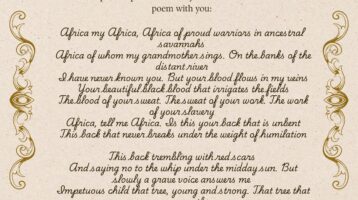 poem with you:
Africa my Africa, Africa of proud warriors in ancestral
savannahs
Africa of whom my grandmother sings. On the banks of the
distant river
I have never known you. But your blood flows in my veins
Your beautiful black blood that irrigates the fields
The blood of your sweat. The sweat of your work. The work
of your slavery
Africa, tell me Africa. Is this your back that is unbent
This back that never breaks under the weight of humilation
This back trembling with red scars
And saying no to the whip under the midday sun. But
slowly a grave voice answers me
Impetuous child that tree, young and strong. That tree that